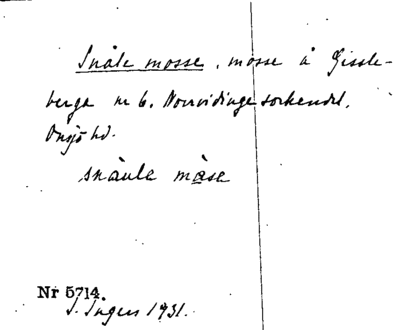 Snåle mosse, mosse å Gissle-
berga nr 6. Norrvidinge sockendel,
Onsjö hd.
snàule màse
Nr 5714.
I. Ingers 1931.